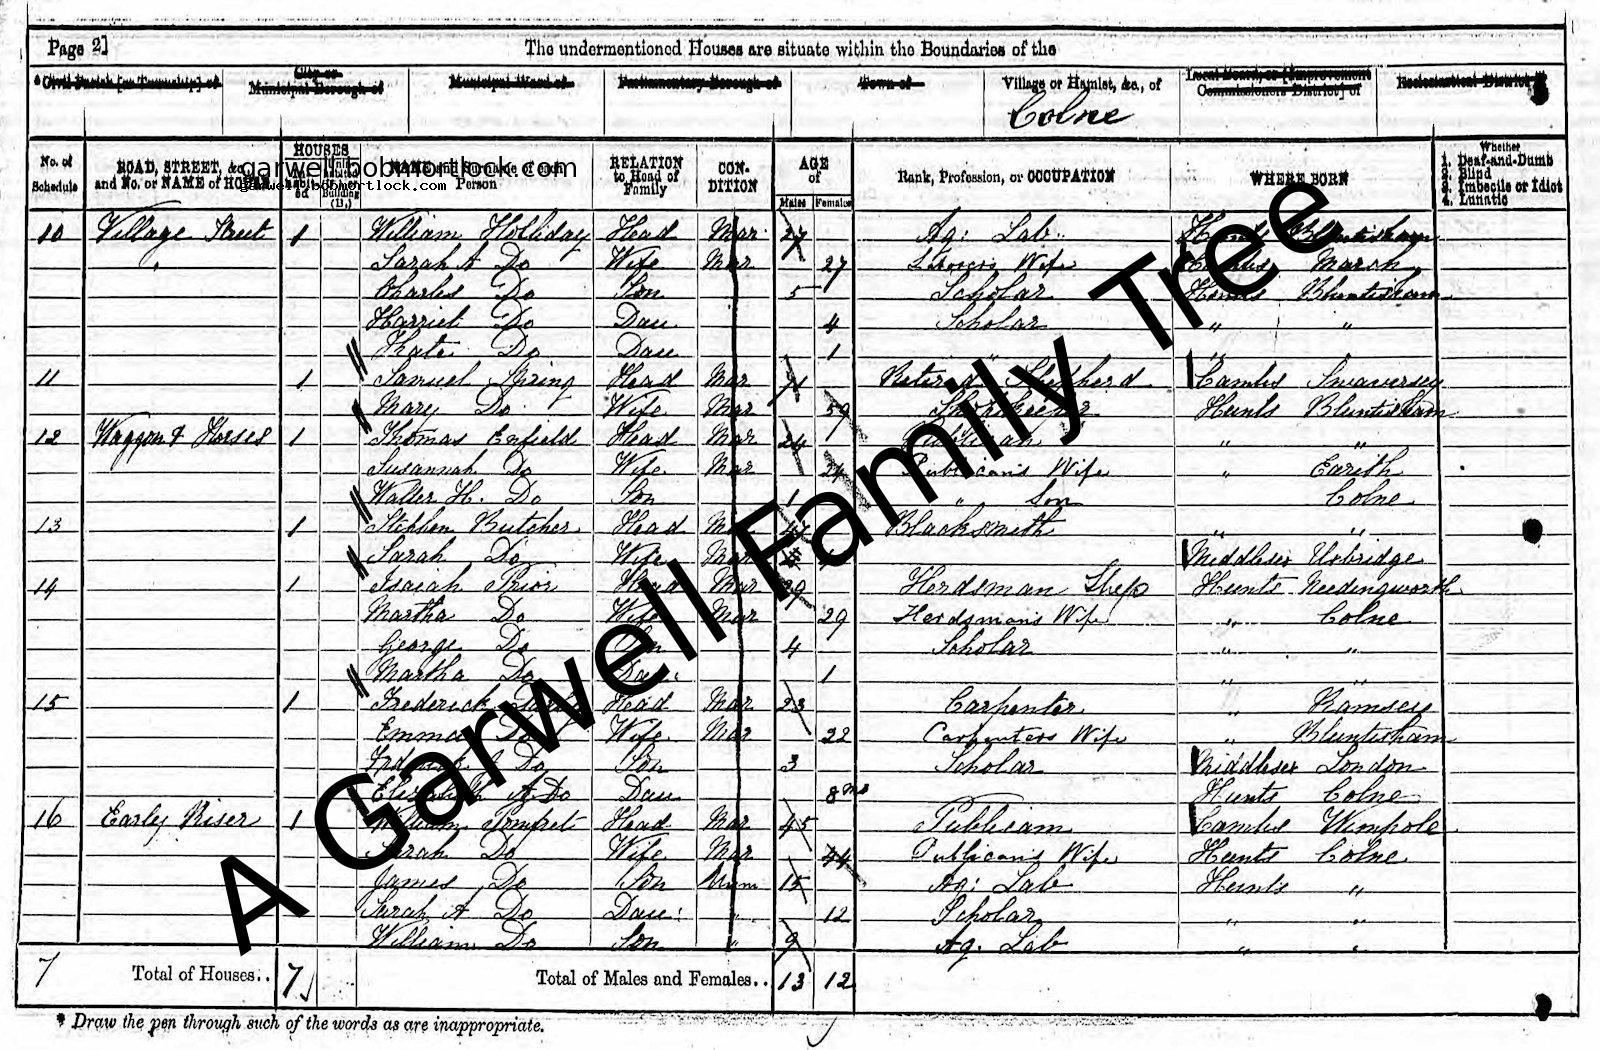 Page 2]
The undermentioned Houses are situate within the Boundaries of the
* Civil Parish [or Township] of
City or Municipal Borough of
Municipal Ward of
Parliamentary Borough of
Town of
Village or Hamlet, &c., of
Colne
Local Board, or [Improvement Commissioners District] of
Ecclesiastical District
No. of Schedule
ROAD, STREET, &c., and No. or NAME of HOUSE
HOUSES
NAME and Surname of each Person
RELATION to Head of Family
CONDITION
AGE of
Males
Females
Rank, Profession, or OCCUPATION
WHERE BORN
Whether
1. Deaf-and-Dumb
2. Blind
3. Imbecile or Idiot
4. Lunatic
garwell.bobmortlock.com
garwell.bobmortlock.com
10 Village Street 1 William Holliday Head Mar 27 Ag: Lab. Hunts Bluntisham
" Sarah A Do Wife Mar 27 Wife Cambs March
Charles Do Son 5 Scholar Hunts Bluntisham
Harriet Do Dau 4 Scholar " "
Kate Do Dau 1 " "
11 1 Samuel Spring Head Mar 71 Retired Shepherd Cambs Swaversey
Mary Do Wife Mar 59 Hunts Bluntisham
12 Waggon & Horses 1 Thomas Enfield Head Mar 24 Publican " "
Susannah Do Wife Mar 24 Publican's Wife " Earith
Walter H. Do Son 1 " Son Colne
13 1 Stephen Butcher Head Mar 47 Blacksmith " "
Sarah Do Wife Mar Middlesex Uxbridge
14 1 Isaiah Prior Head Mar 29 Herdsman Shep Hunts Needingworth
Martha Do Wife Mar 29 Herdsman's Wife " Colne
George Do Son 4 Scholar " "
Martha Do Dau. 1 " "
15 1 Frederick Head Mar 23 Carpenter " Ramsey
Emma Do Wife Mar 22 Carpenters Wife " Bluntisham
Do Son 3 Scholar Middlesex London
Elizabeth A Do Dau 8ms Hunts Colne
16 Earley Riser 1 William Pomfret Head Mar 45 Publican Cambs Wimpole
Sarah Do Wife Mar 44 Publican's Wife Hunts Colne
James Do Son Unm 15 Ag: Lab Hunts "
Sarah A Do Dau: " 12 Scholar " "
William Do Son " 9 Ag. Lab " "
7 Total of Houses.. 7 Total of Males and Females.. 13 12
* Draw the pen through such of the words as are inappropriate.
A Garwell Family Tree